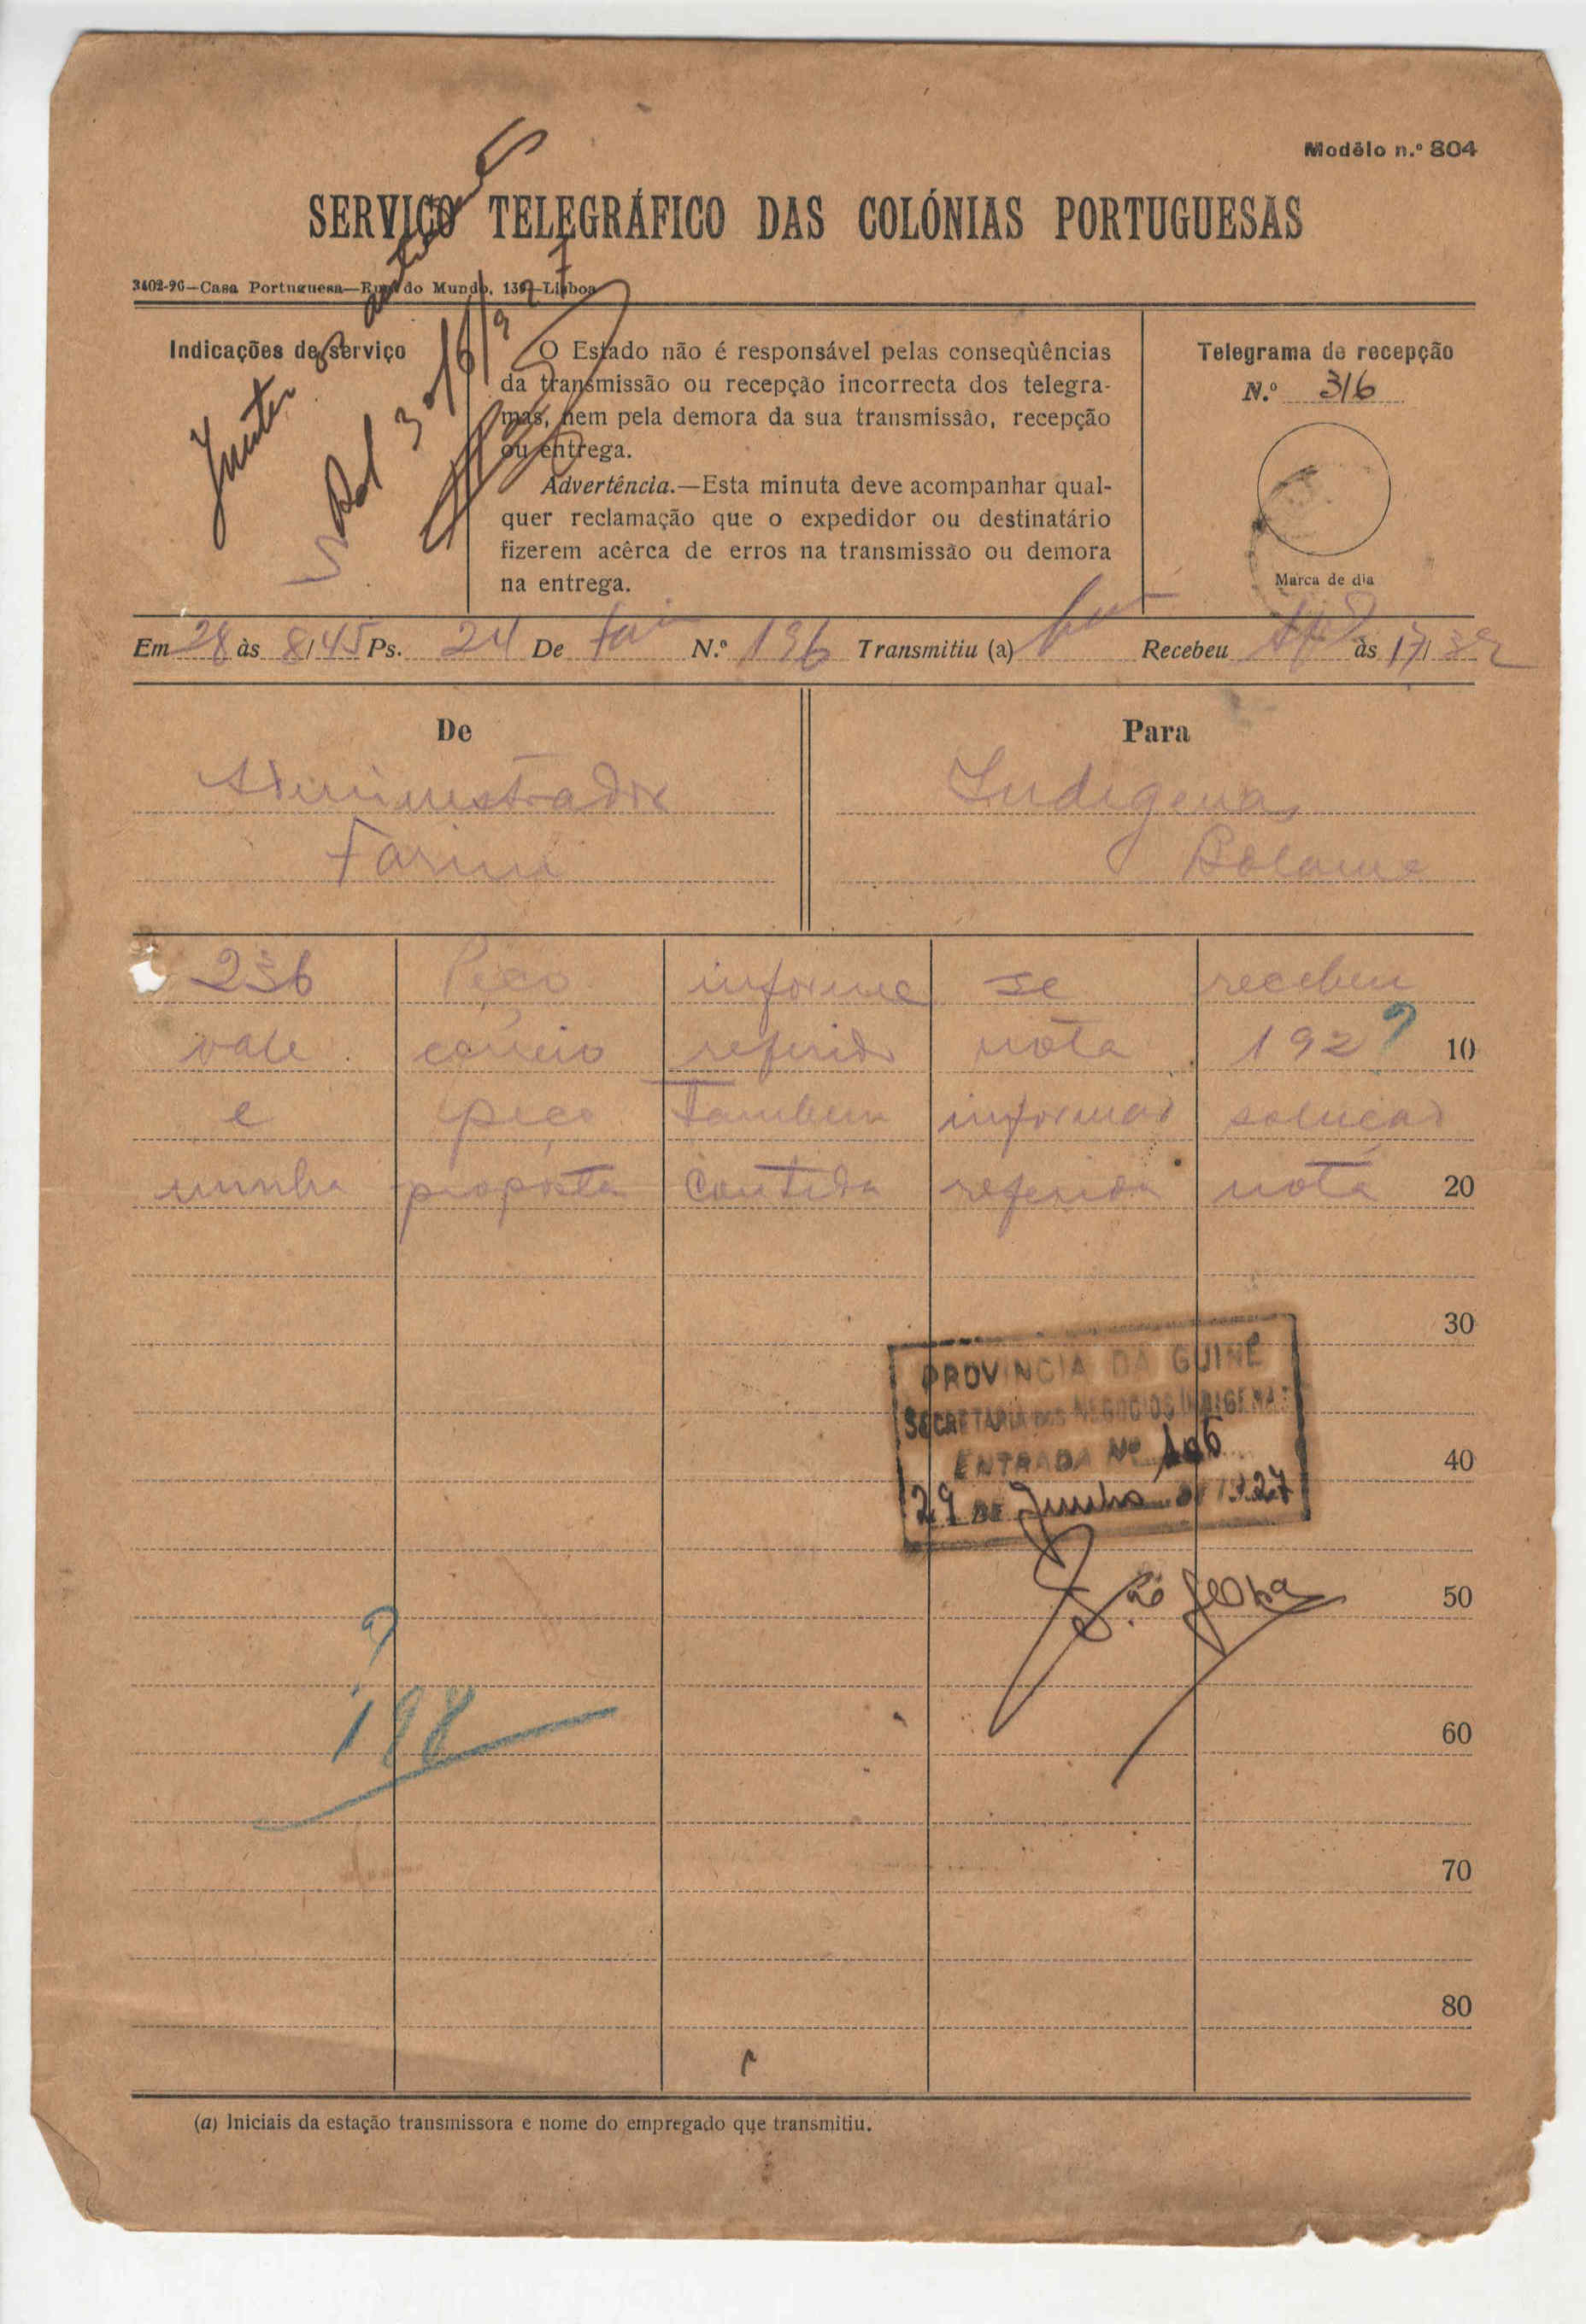 Modêlo n.º 804
SERVIÇO TELEGRÁFICO DAS COLÓNIAS PORTUGUESAS
3402-96—Casa Portuguesa—Rua do Mundo, 139—Lisboa
Indicações de serviço
Juntar aos
Bol 30/6/927
O Estado não é responsável pelas conseqùências
da transmissão ou recepção incorrecta dos telegra-
mas, nem pela demora da sua transmissão, recepção
ou entrega.
Advertência.—Esta minuta deve acompanhar qual-
quer reclamação que o expedidor ou destinatário
fizerem acêrca de erros na transmissão ou demora
na entrega.
Telegrama de recepção
N.º 316
Marca de dia
Em 28 às 8/45 Ps. 24 De N.º 196 Transmitiu (a) Recebeu às 17/
De
Administrador
Farim
Para
Indigena
Bolama
236 Peço informe se recebeu
vale correio referido nota 192 ? 10
e peço tambem informar solução
minha proposta contida referida nota 20
30
40
50
60
70
80
PROVINCIA DA GUINÉ
SECRETARIA DOS NEGOCIOS INDIGENAS
ENTRADA Nº
29 DE Junho DE 1927
?
198
(a) Iniciais da estação transmissora e nome do empregado que transmitiu.